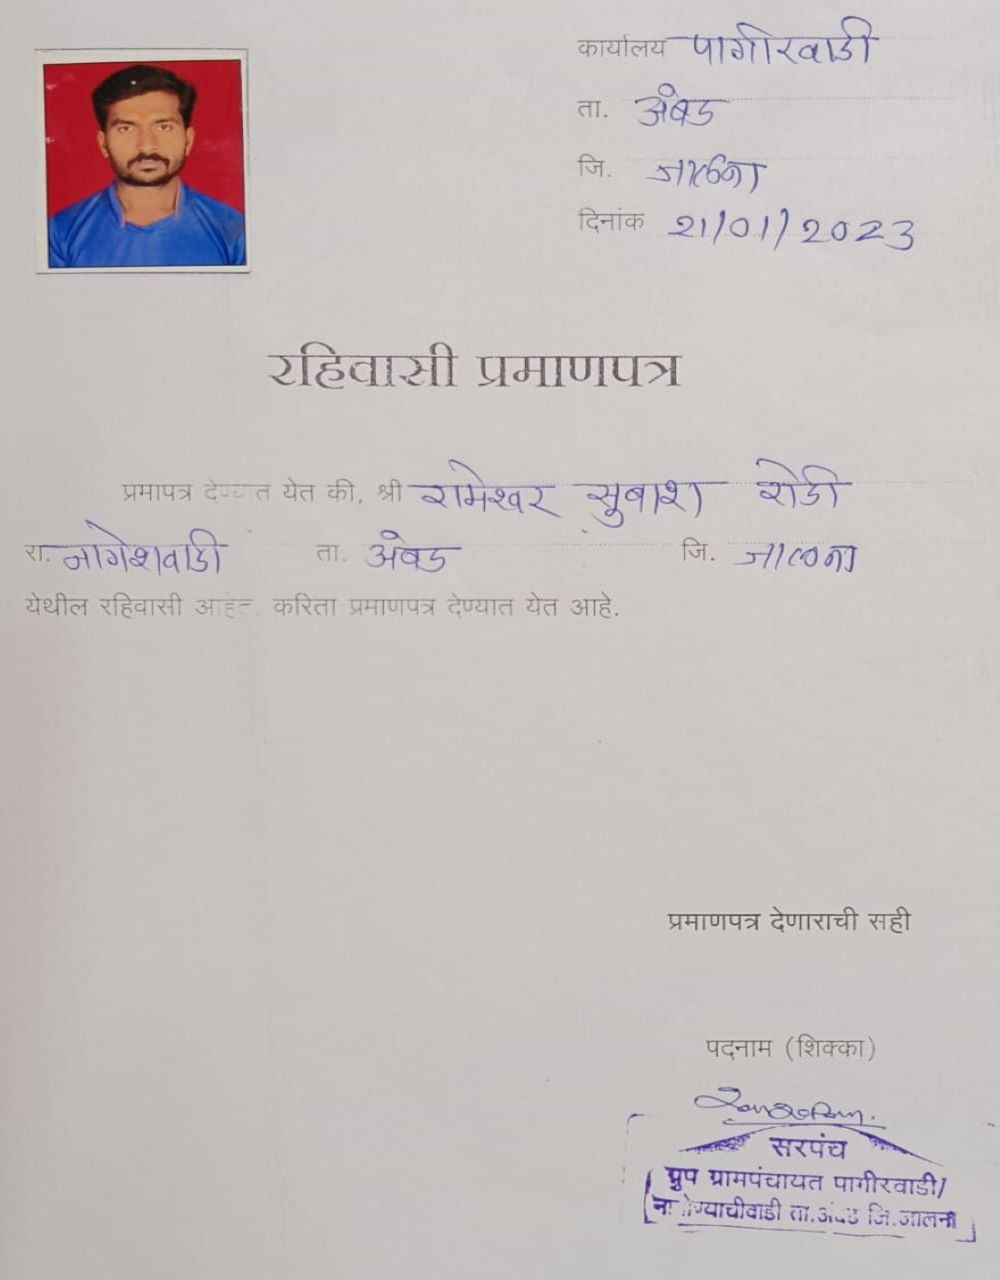 कार्यालय पागीरवाडी
ता. अंबड
जि. जालना
दिनांक 21/01/2023
रहिवासी प्रमाणपत्र
प्रमापत्र देण्यात येत की, श्री रामेश्वर सुबाश शेडी
रा. नागेशवाडी ता. अंबड जि. जालना
येथील रहिवासी आहेत. करिता प्रमाणपत्र देण्यात येत आहे.
प्रमाणपत्र देणाराची सही
पदनाम (शिक्का)
सरपंच
ग्रुप ग्रामपंचायत पागीरवाडी/
ता. अंबड जि. जालना